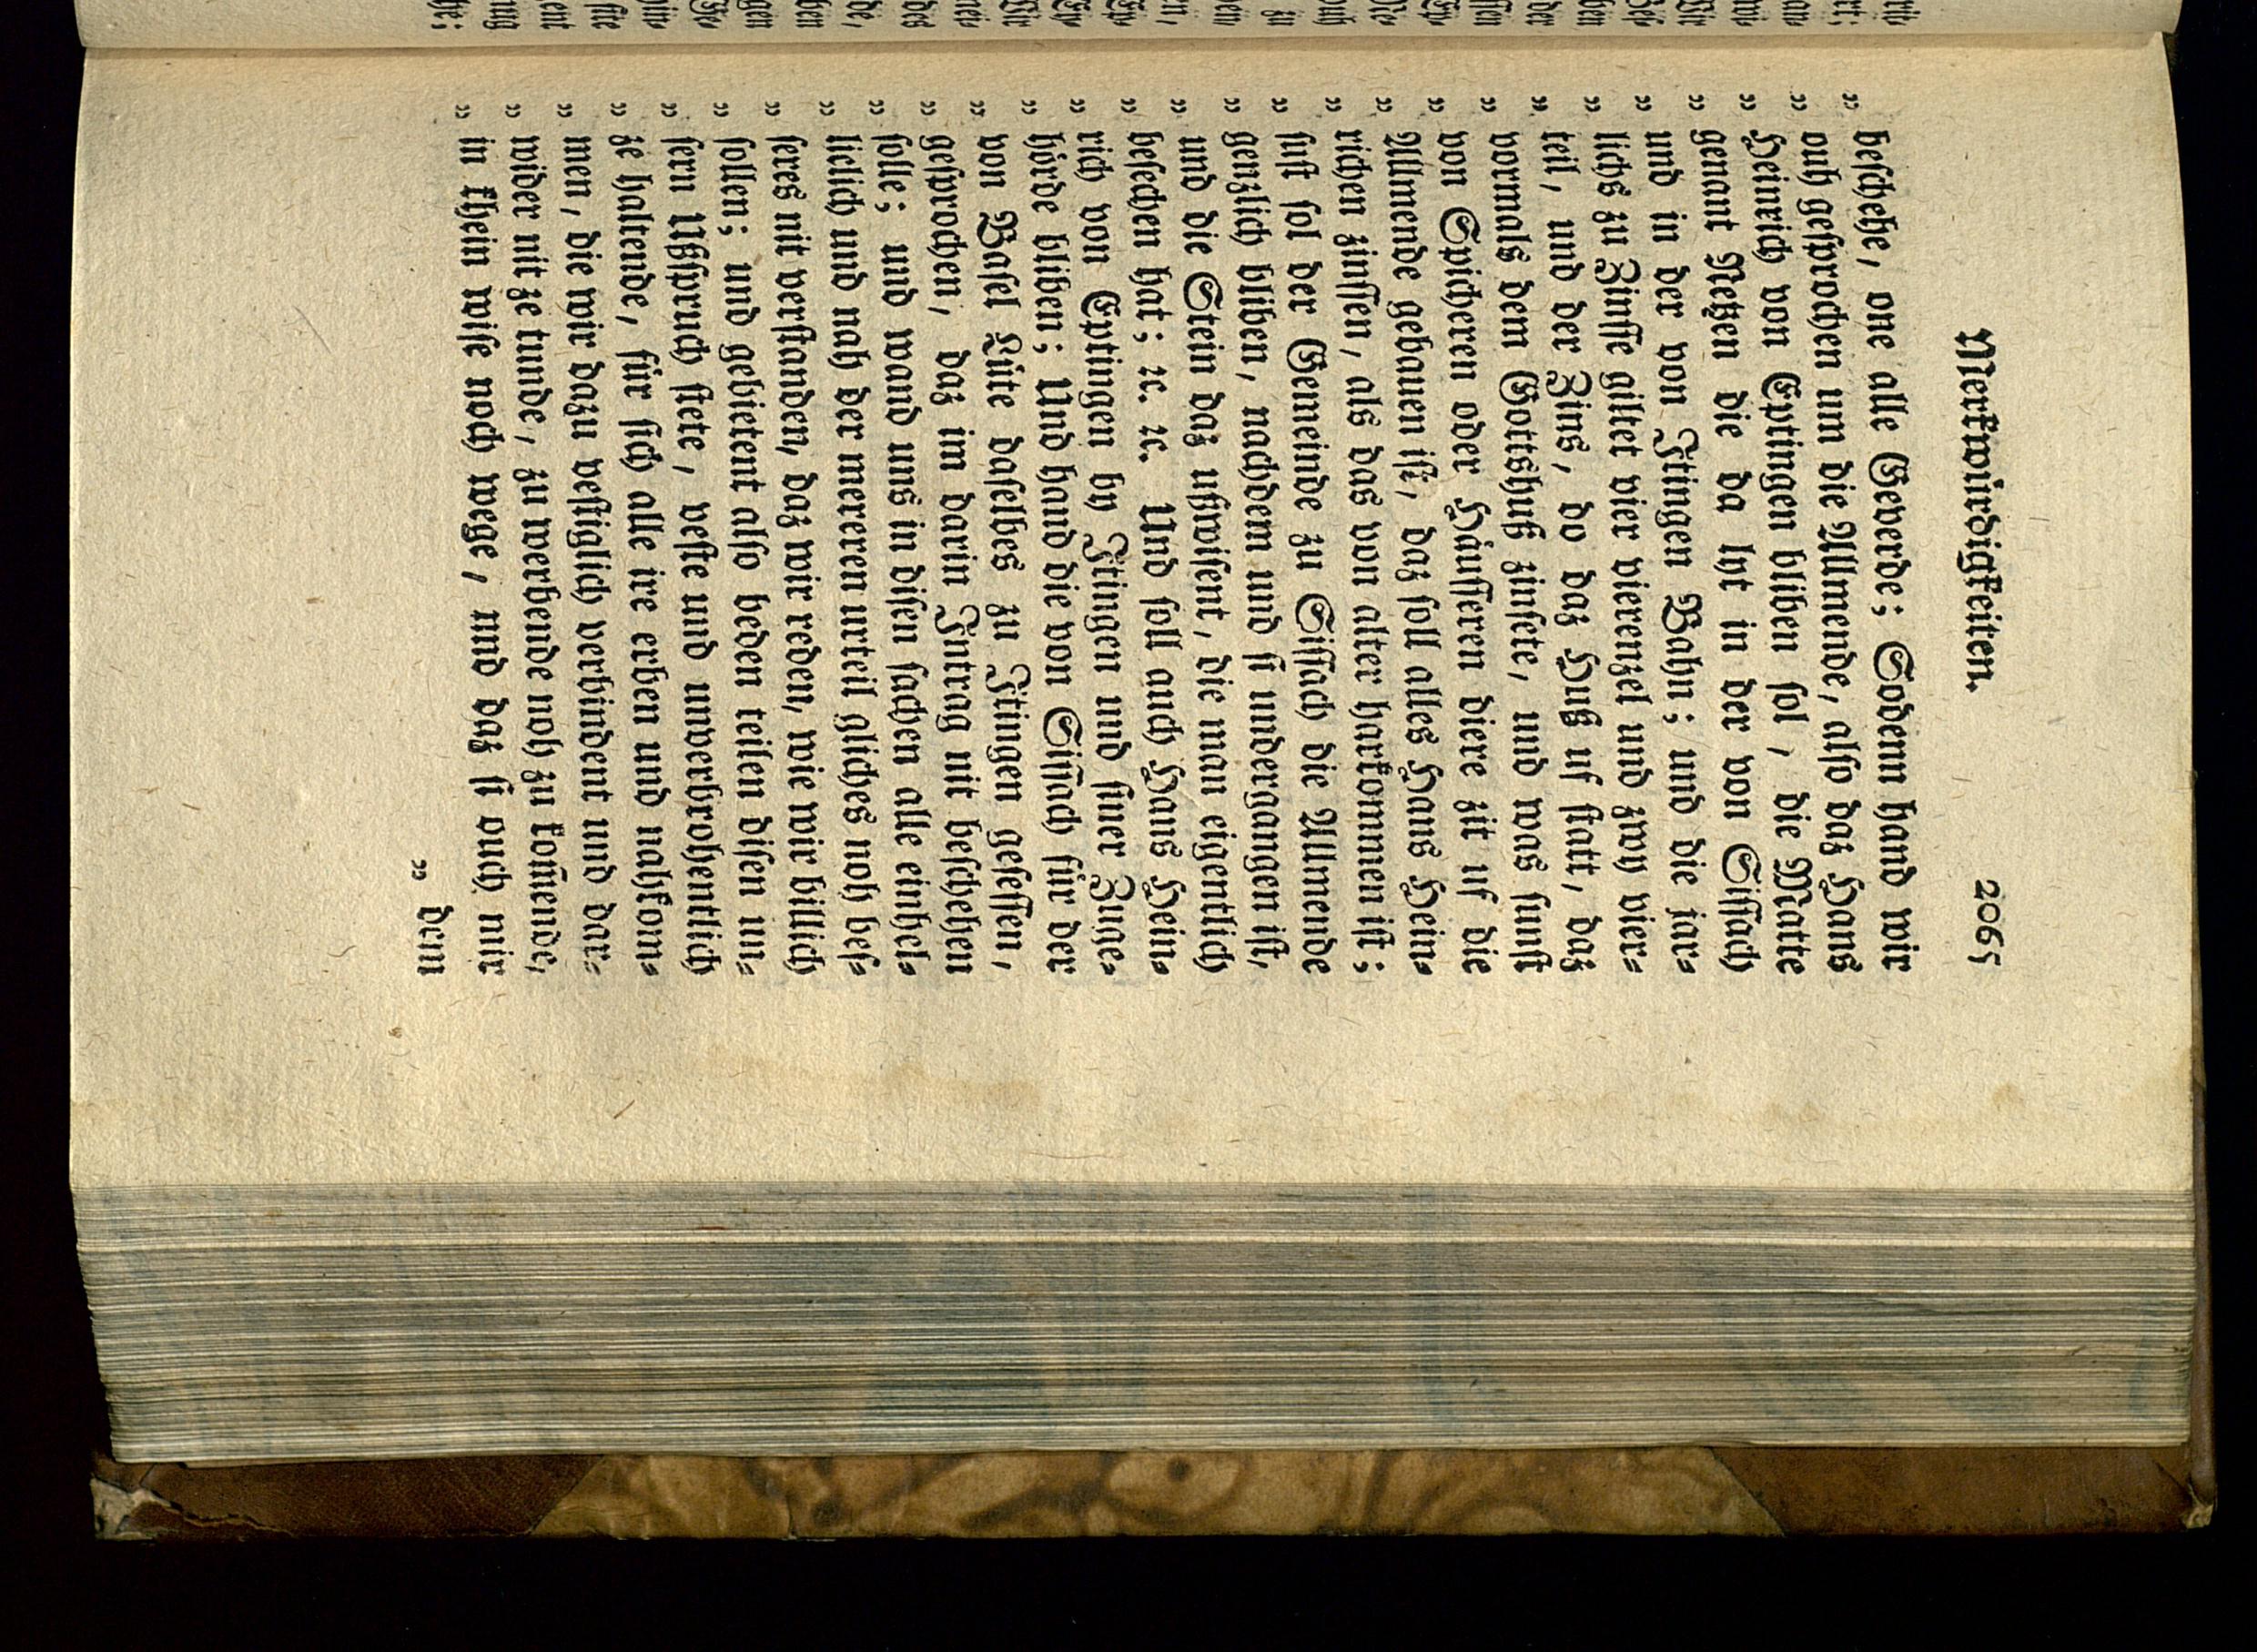 Merkwürdigkeiten. 2065
„ beschehe, one alle Geverde; Sodenn hand wir
„ ouh gesprochen um die Allmende, also daz Hans
„ Heinrich von Eptingen bliben sol, die Matte
„ genant Netzen die da lyt in der von Sissach
„ und in der von Itingen Bahn; und die jar⸗
„ lichs zu Zinsse giltet vier vierenzel und zwy vier⸗
„ teil, und der Zins, do daz Huß uf statt, daz
„ vormals dem Gottshuß zinsete, und was sunst
„ von Spicheren oder Häusseren diere zit uf die
„ Allmende gebauen ist, daz soll alles Hans Hein⸗
„ richen zinssen, als das von alter harkommen ist;
„ sust sol der Gemeinde zu Sissach die Allmende
„ genzlich bliben, nachdem und si undergangen ist,
„ und die Stein daz ußwisent, die man eigentlich
„ besechen hat; ꝛc. ꝛc. Und soll auch Hans Hein⸗
„ rich von Eptingen by Itingen und siner Zuge⸗
„ hörde bliben; Und hand die von Sissach für der
„ von Basel Lüte daselbes zu Itingen gesessen,
„ gesprochen, daz im darin Intrag nit beschehen
„ solle; und wand uns in disen sachen alle einhel⸗
„ liclich und nah der mereren urteil gliches noh bes⸗
„ seres nit verstanden, daz wir reden, wie wir billich
„ sollen; und gebietent also beden teilen disen un⸗
„ sern Ußspruch stete, veste und unverbrohentlich
„ ze haltende, für sich alle ire erben und nahkom⸗
„ men, die wir dazu vestiglich verbindent und dar⸗
„ wider nit ze tunde, zu werbende noh zu komende,
„ in khein wise noch wege, und daz si ouch mir
„ dem